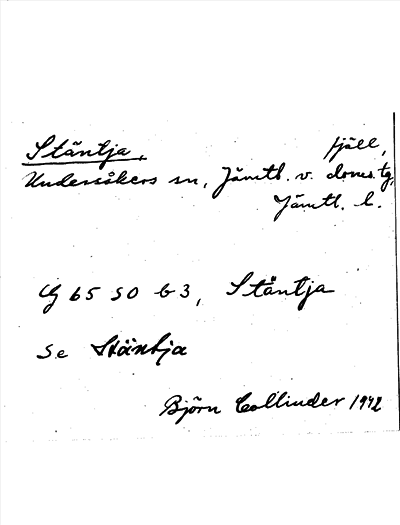 Stäntja, fjäll,
Undersåkers sn, Jämtl. v. doms.tg,
Jämtl. l.
G 65 SO b 3, Stäntja
Se Stäntja
Björn Collinder 1942